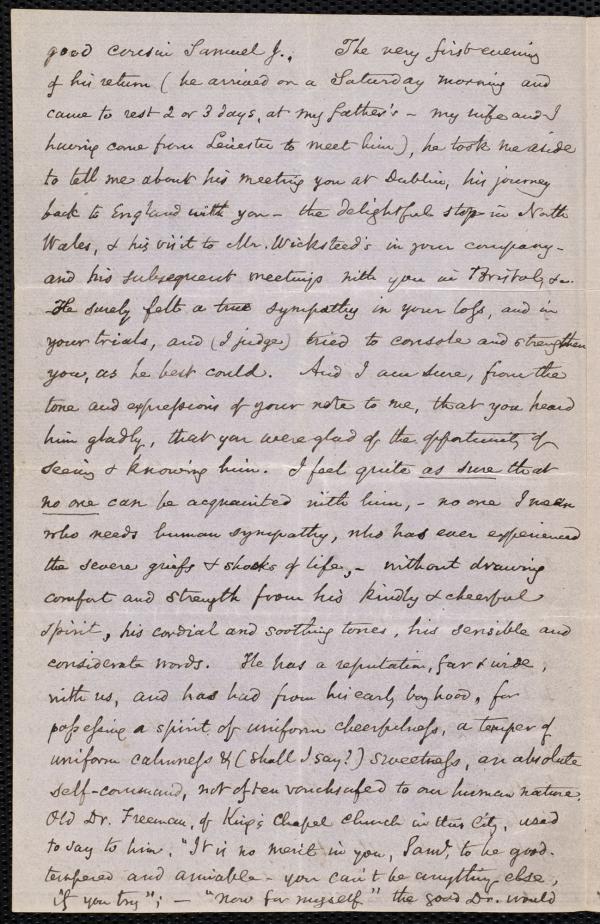 good cousin Samuel J., The very first evening
of his return (he arrived on a Saturday morning and
came to rest 2 or 3 days, at my father's – my wife and I
having come from Leicester to meet him), he took me aside
to tell me about his meeting you at Dublin, his journey
back to England with you – the delightful stop in North
Wales, & his visit to Mr. Wicksteed's in your company –
and his subsequent meetings with you in Bristol, &c.
He surely felt a true sympathy in your loss, and in
your trials, and (I judge) tried to console and strengthen
you, as he best could. And I am sure, from the
tone and expressions of your note to me, that you heard
him gladly, that you were glad of the opportunity of
seeing & knowing him. I feel quite as sure that
no one can be acquainted with him, – no one I mean
who needs human sympathy, who has ever experienced
the severe griefs & shocks of life, – without drawing
comfort and strength from his kindly & cheerful
spirit, his cordial and soothing tones, his sensible and
considerate words. He has a reputation, far & wide,
with us, and has had from his early boyhood, for
possessing a spirit of uniform cheerfulness, a temper of
uniform calmness & (shall I say?) sweetness, an absolute
self-command, not often vouchsafed to our human nature.
Old Dr. Freeman, of King's Chapel Church in this City, used
to say to him, "It is no merit in you, Saml, to be good-
tempered and amiable – you can't be anything else,
if you try"; – "Now for myself" the good Dr. would